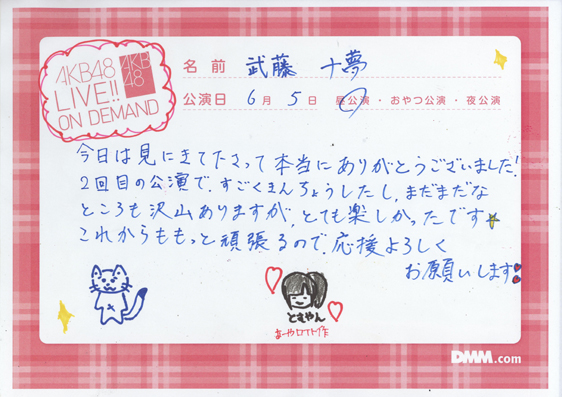 AKB48
LIVE!!
ON DEMAND
AKB
48
名前 武藤 十夢
公演日 6月 5日 昼公演・おやつ公演・夜公演
今日は見にきて下さって本当にありがとうございました!
2回目の公演で、すごくきんちょうしたし、まだまだな
ところも沢山ありますが、とても楽しかったです
これからももっと頑張るので、応援よろしく
お願いします!!
ともやん
DMM.com